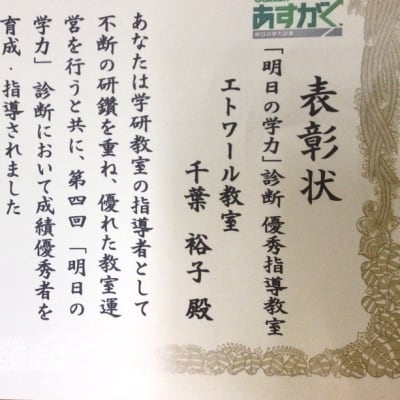 あすがく
明日の学力診断
表彰状
「明日の学力」診断 優秀指導教室
エトワール教室
千葉 裕子 殿
あなたは学研教室の指導者として
不断の研鑽を重ね、優れた教室運
営を行うと共に、第四回「明日の
学力」診断において成績優秀者を
育成・指導されました